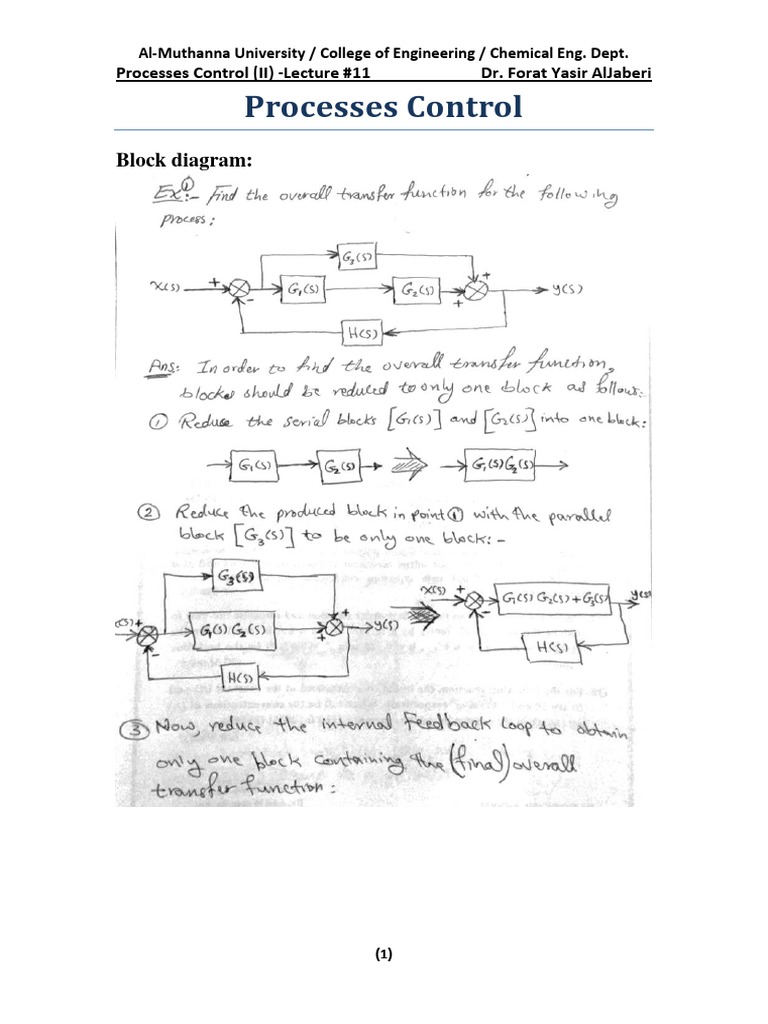 Al-Muthanna University / College of Engineering / Chemical Eng. Dept.
Processes Control (II) -Lecture #11 Dr. Forat Yasir AlJaberi
Processes Control
Block diagram:
Ex①:- Find the overall transfer function for the following
process:
G₃(s)
X(s) + - G₁(s) G₂(s) + + y(s)
H(s)
Ans: In order to find the overall transfer function,
blockes should be reduced to only one block as follows:-
① Reduce the serial blocks [G₁(s)] and [G₂(s)] into one block:
G₁(s) G₂(s) G₁(s)G₂(s)
② Reduce the produced block in point ① with the parallel
block [G₃(s)] to be only one block:-
G₃(s)
(s) + - G₁(s) G₂(s) + + y(s)
H(s)
X(s) + - G₁(s) G₂(s)+G₃(s) y(s)
H(s)
③ Now, reduce the internal Feedback loop to obtain
only one block containing the (final) overall
transfer function:
(1)